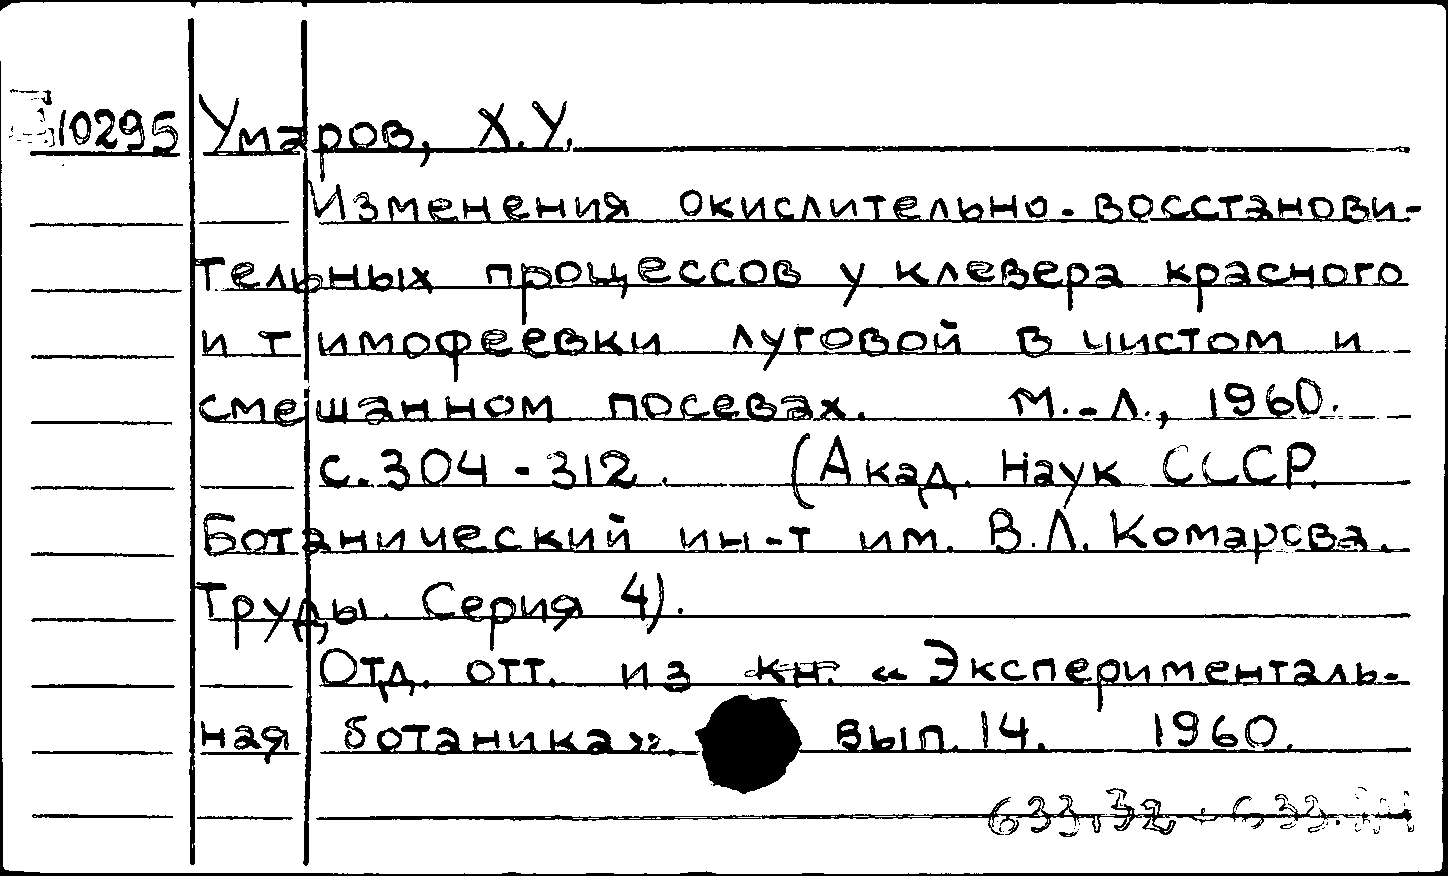 10295 Умаров, Х.У.
Изменения окислительно-восстанови-
тельных процессов у клевера красного
и тимофеевки луговой в чистом и
смешанном посевах. М.-Л., 1960.
с. 304-312. (Акад. Наук СССР.
Ботанический ин-т им. В.Л. Комарова.
Труды. Серия 4).
Отд. отт. из кн. «Эксперименталь-
ная ботаника». вып. 14. 1960.
633.32